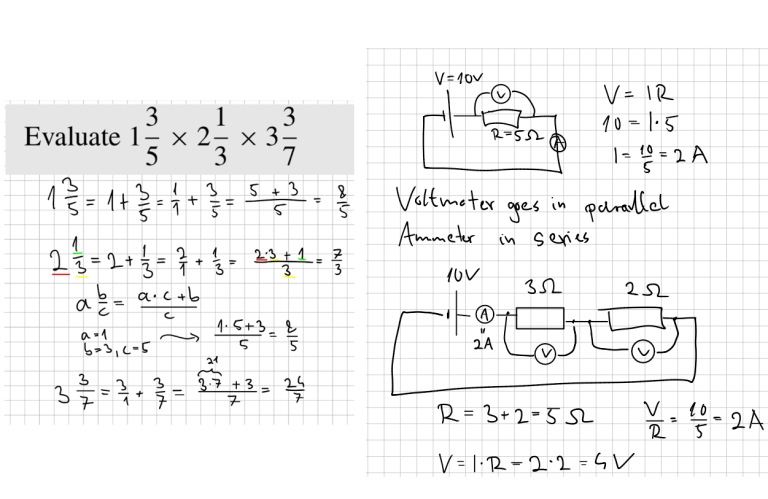 Evaluate 1 3/5 × 2 1/3 × 3 3/7
1 3/5 = 1 + 3/5 = 1/1 + 3/5 = (5 + 3)/5 = 8/5
2 1/3 = 2 + 1/3 = 2/1 + 1/3 = (2·3 + 1)/3 = 7/3
a b/c = (a·c + b)/c
a=1
b=3, c=5 → (1·5+3)/5 = 8/5
21
3 3/7 = 3/1 + 3/7 = (3·7 + 3)/7 = 24/7
V=10V
V
R=5Ω
A
V = IR
10 = I·5
I = 10/5 = 2A
Voltmeter goes in parallel
Ammeter in series
10V
3Ω
2Ω
A
=
2A
V
V
R = 3+2=5Ω
V/R = 10/5 = 2A
V=I·R = 2·2 = 4V